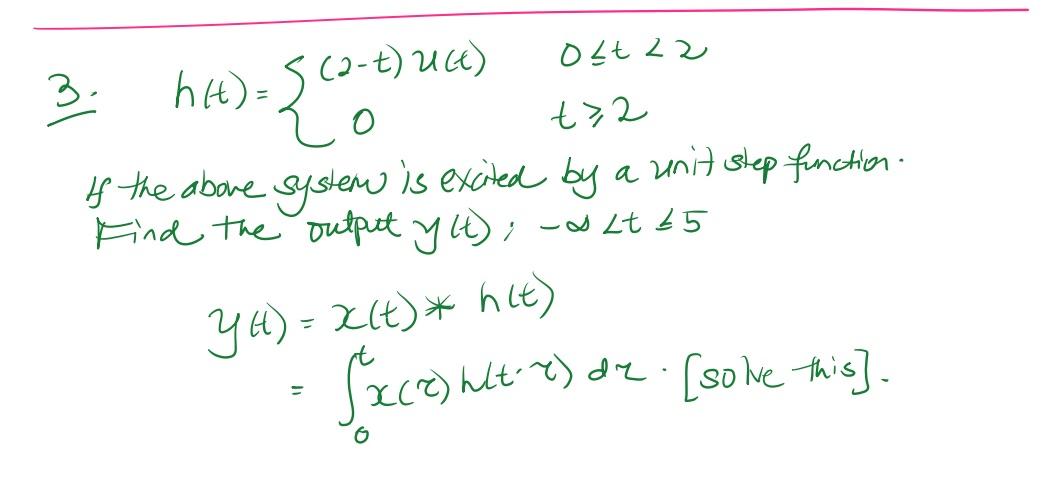 3. h(t) = { (2-t) u(t) 0 ≤ t < 2
0 t ≥ 2
If the above system is excited by a unit step function.
Find the output y(t) ; -∞ < t ≤ 5
y(t) = x(t) * h(t)
= ∫₀ᵗ x(τ) h(t-τ) dτ . [solve this].